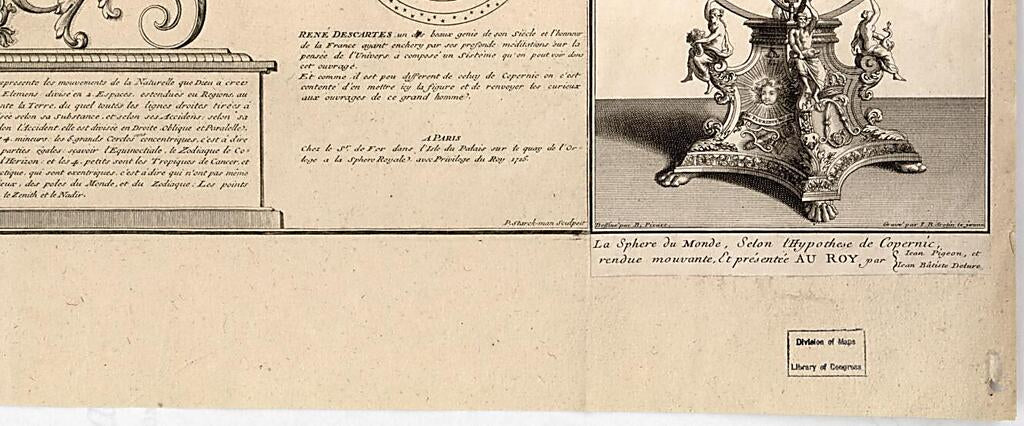 RENÉ DESCARTES, un des beaux genie de son Siecle et l'honneur
de la France ayant enchery par ses profonde meditations sur la
pensée de l'Univers a composé un Sisteme qu'on peut voir dans
cet ouvragé.
Et comme il est peu different de celuy de Copernic on c'est
contenté d'en mettre icy la figure et de renvoyer les curieux
aux ouvrages de ce grand hommé.
A PARIS
Chez le Sr. de Fer dans l'Isle du Palais sur le quay de l'Or-
loge a la Sphere Royale avec Privilege du Roy 1716.
represente les mouvements de la Naturelle que Dieu a creé
Elemens, divise en 2. Espaces, estendües ou Regions, au
nte la Terre, du quel toutés les lignes droites tirées à
isée selon sa Substance, et selon ses Accidens; selon sa
lon l'Accident elle est divisée en Droite, Oblique et Paralelle.
4. mineurs: les 6. grands Cercles sont concentriques, c'est à dire
parties égales, scavoir l'Equinoctiale, le Zodiaque le Co-
l'Horizon: et les 4. petits sont les Tropiques de Cancer, et
ctique, qui sont exentriques, c'est a dire qui n'ont pas mémé
ieux, des poles du Monde, et du Zodiaque. Les points
le Zenith et le Nadir.
P. Starck-man Sculpsit
Dessiné par B. Picart.
Gravé par I. B. Scotin le jeune
La Sphere du Monde, Selon l'Hypothese de Copernic,
rendue mouvante, Et présentée AU ROY par { Iean Pigeon, et
Iean Bâtiste Delure.
Division of Maps
Library of Congress